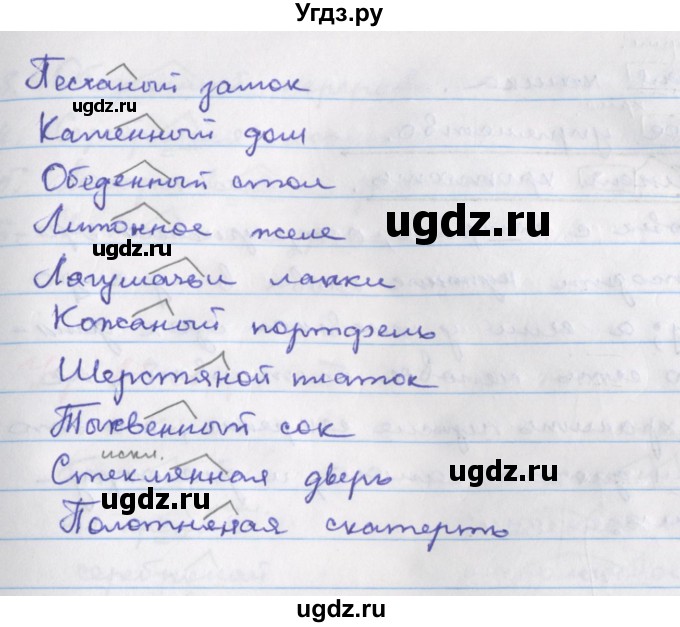 Угдз.ру
Песчаный замок
ugdz.ru
Каменный дом
Обеденный стол
ugdz.ru
Лимонное желе
ugdz.ru
Лягушачьи лапки
Кожаный портфель
Шерстяной платок
Тыквенный сок
искл.
Стеклянная дверь
ugdz.ru
Полотняная скатерть
ugdz.ru
ugdz.ru